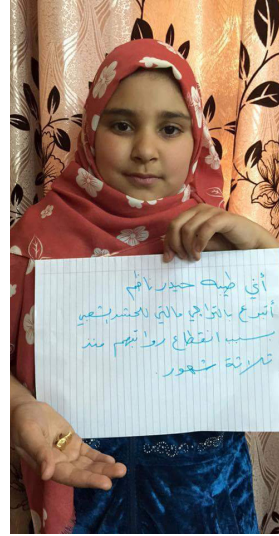 أني طيبه حيدر ناظم
أتبرع بالتراجي مالتي للحشد الشعبي
بسبب انقطاع رواتبهم منذ
ثلاثة شهور.